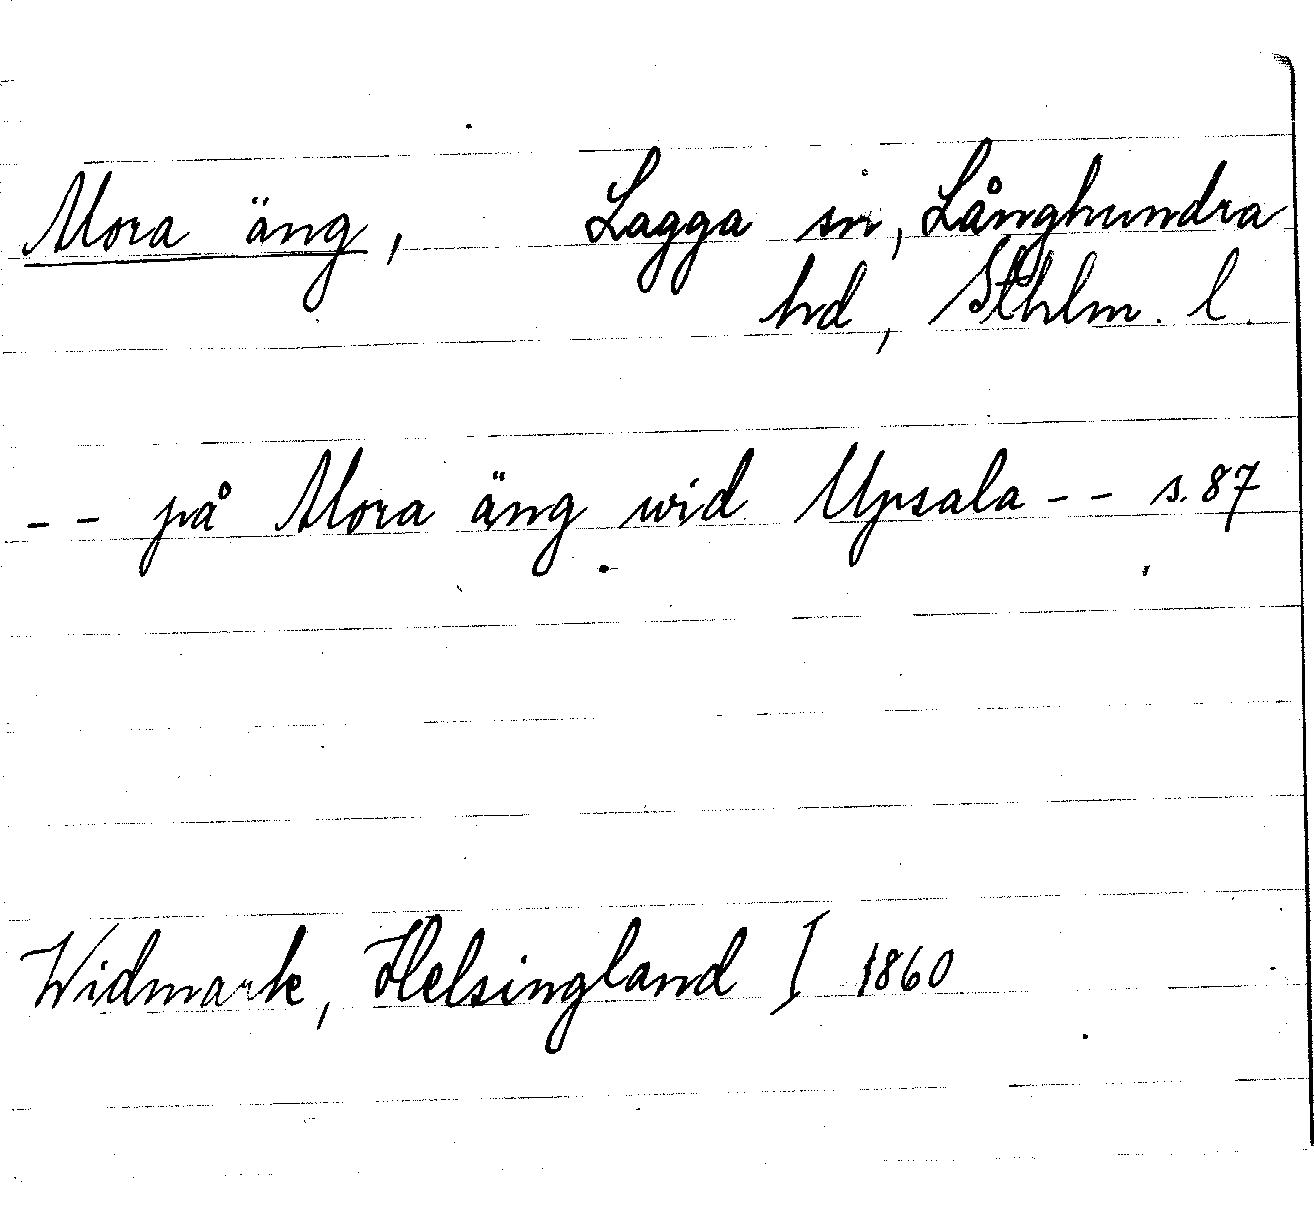 Mora äng, Lagga sn, Långhundra
hd, Sthlm. l.
-- på Mora äng wid Upsala -- s. 87
Widmark, Helsingland I 1860